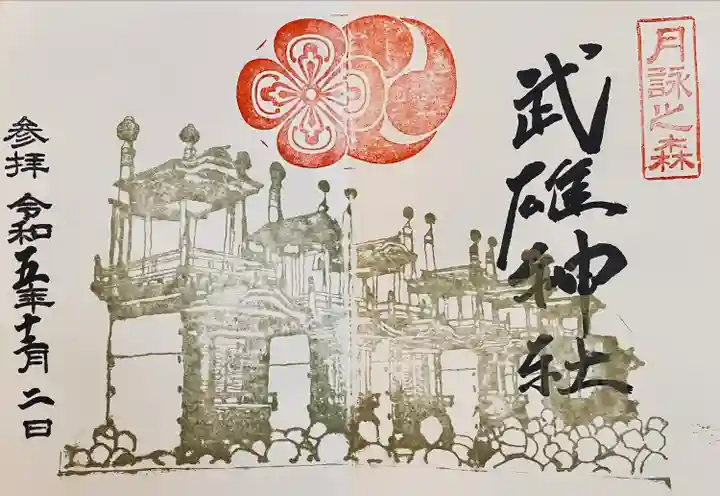 月詠之森
武雄神社
参拝 令和五年十一月二日